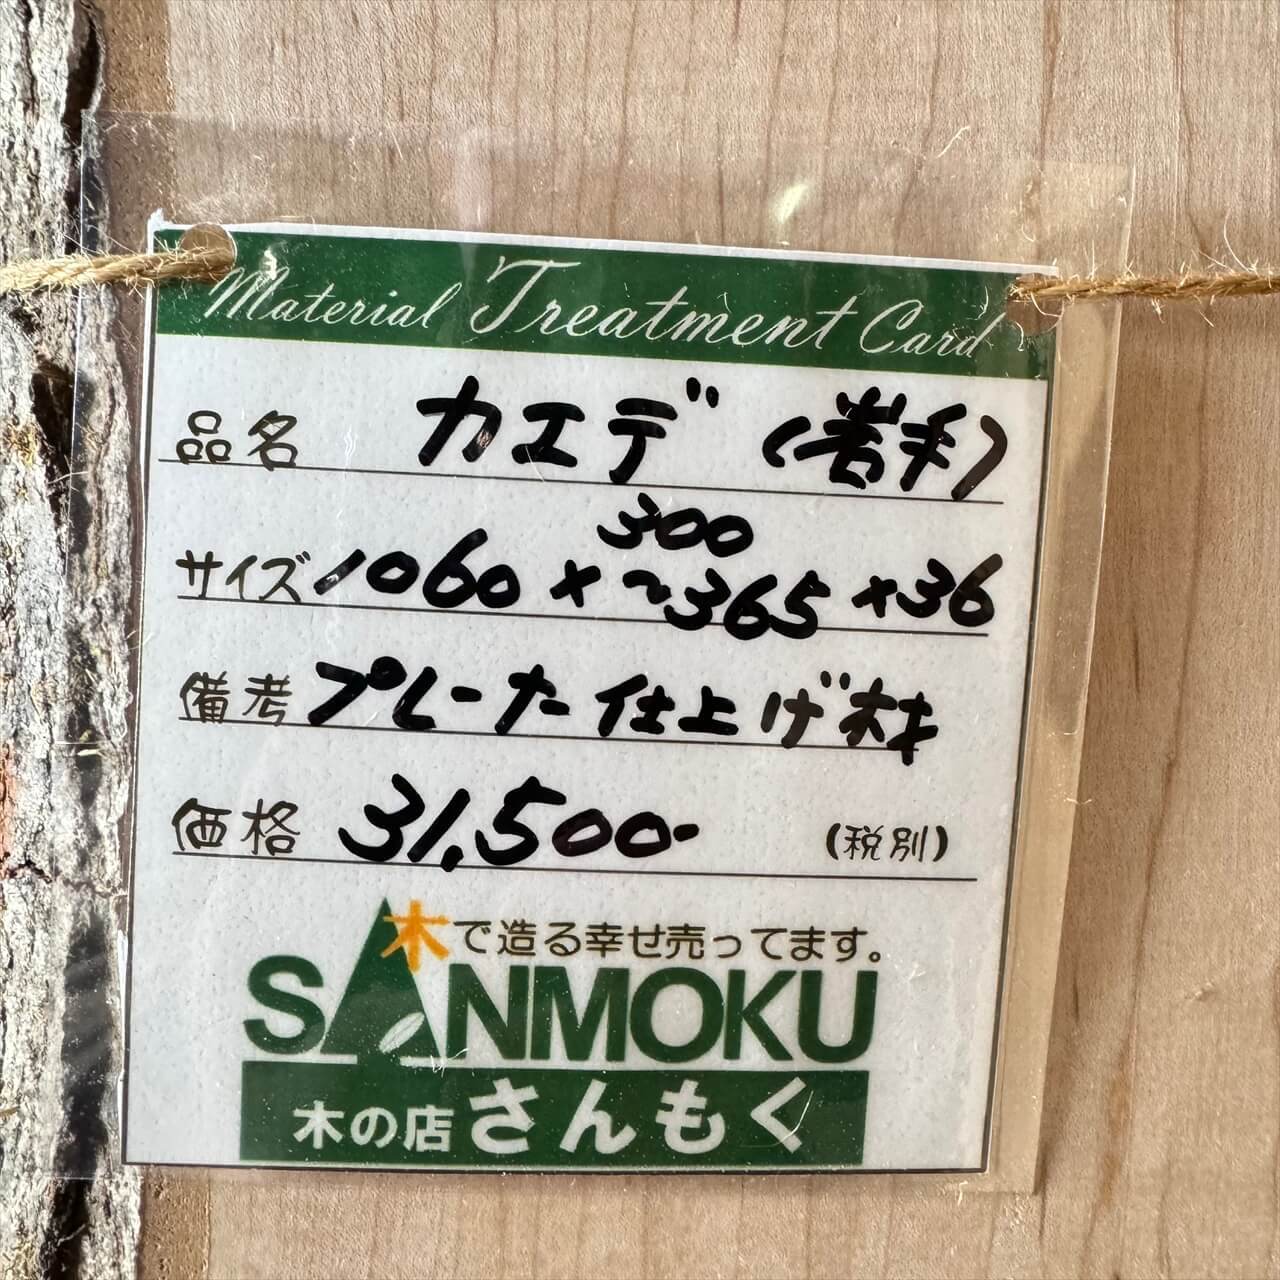 Material Treatment Card
品名 カエデ (岩手)
サイズ 1060 × 300~365 × 36
備考 プレーナー仕上げ材
価格 31,500- (税別)
木で造る幸せ売ってます。
SANMOKU
木の店 さんもく